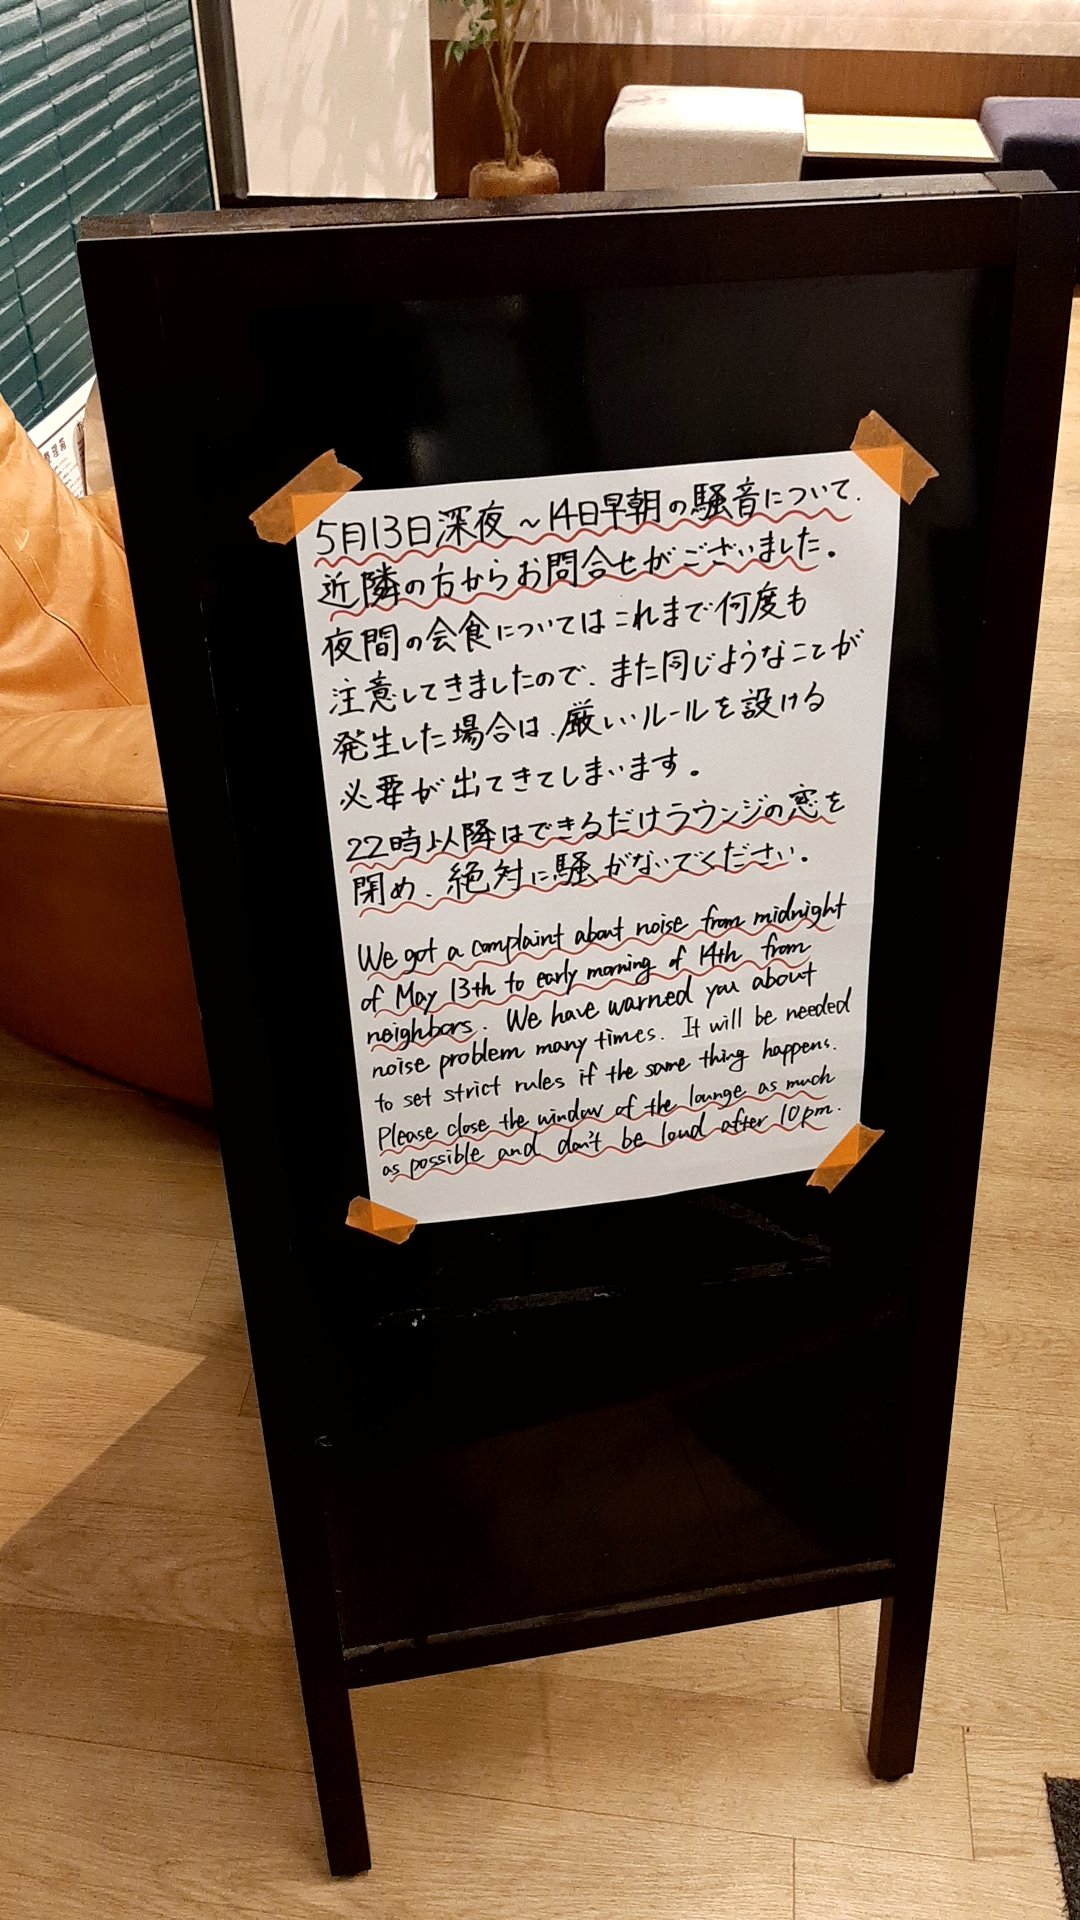 5月13日深夜～14日早朝の騒音について、
近隣の方からお問合せがございました。
夜間の会食についてはこれまで何度も
注意してきましたので、また同じようなことが
発生した場合は、厳しいルールを設ける
必要が出てきてしまいます。
22時以降はできるだけラウンジの窓を
閉め、絶対に騒がないでください。
We got a complaint about noise from midnight
of May 13th to early morning of 14th from
neighbors. We have warned you about
noise problem many times. It will be needed
to set strict rules if the same thing happens.
Please close the window of the lounge as much
as possible and don't be loud after 10pm.